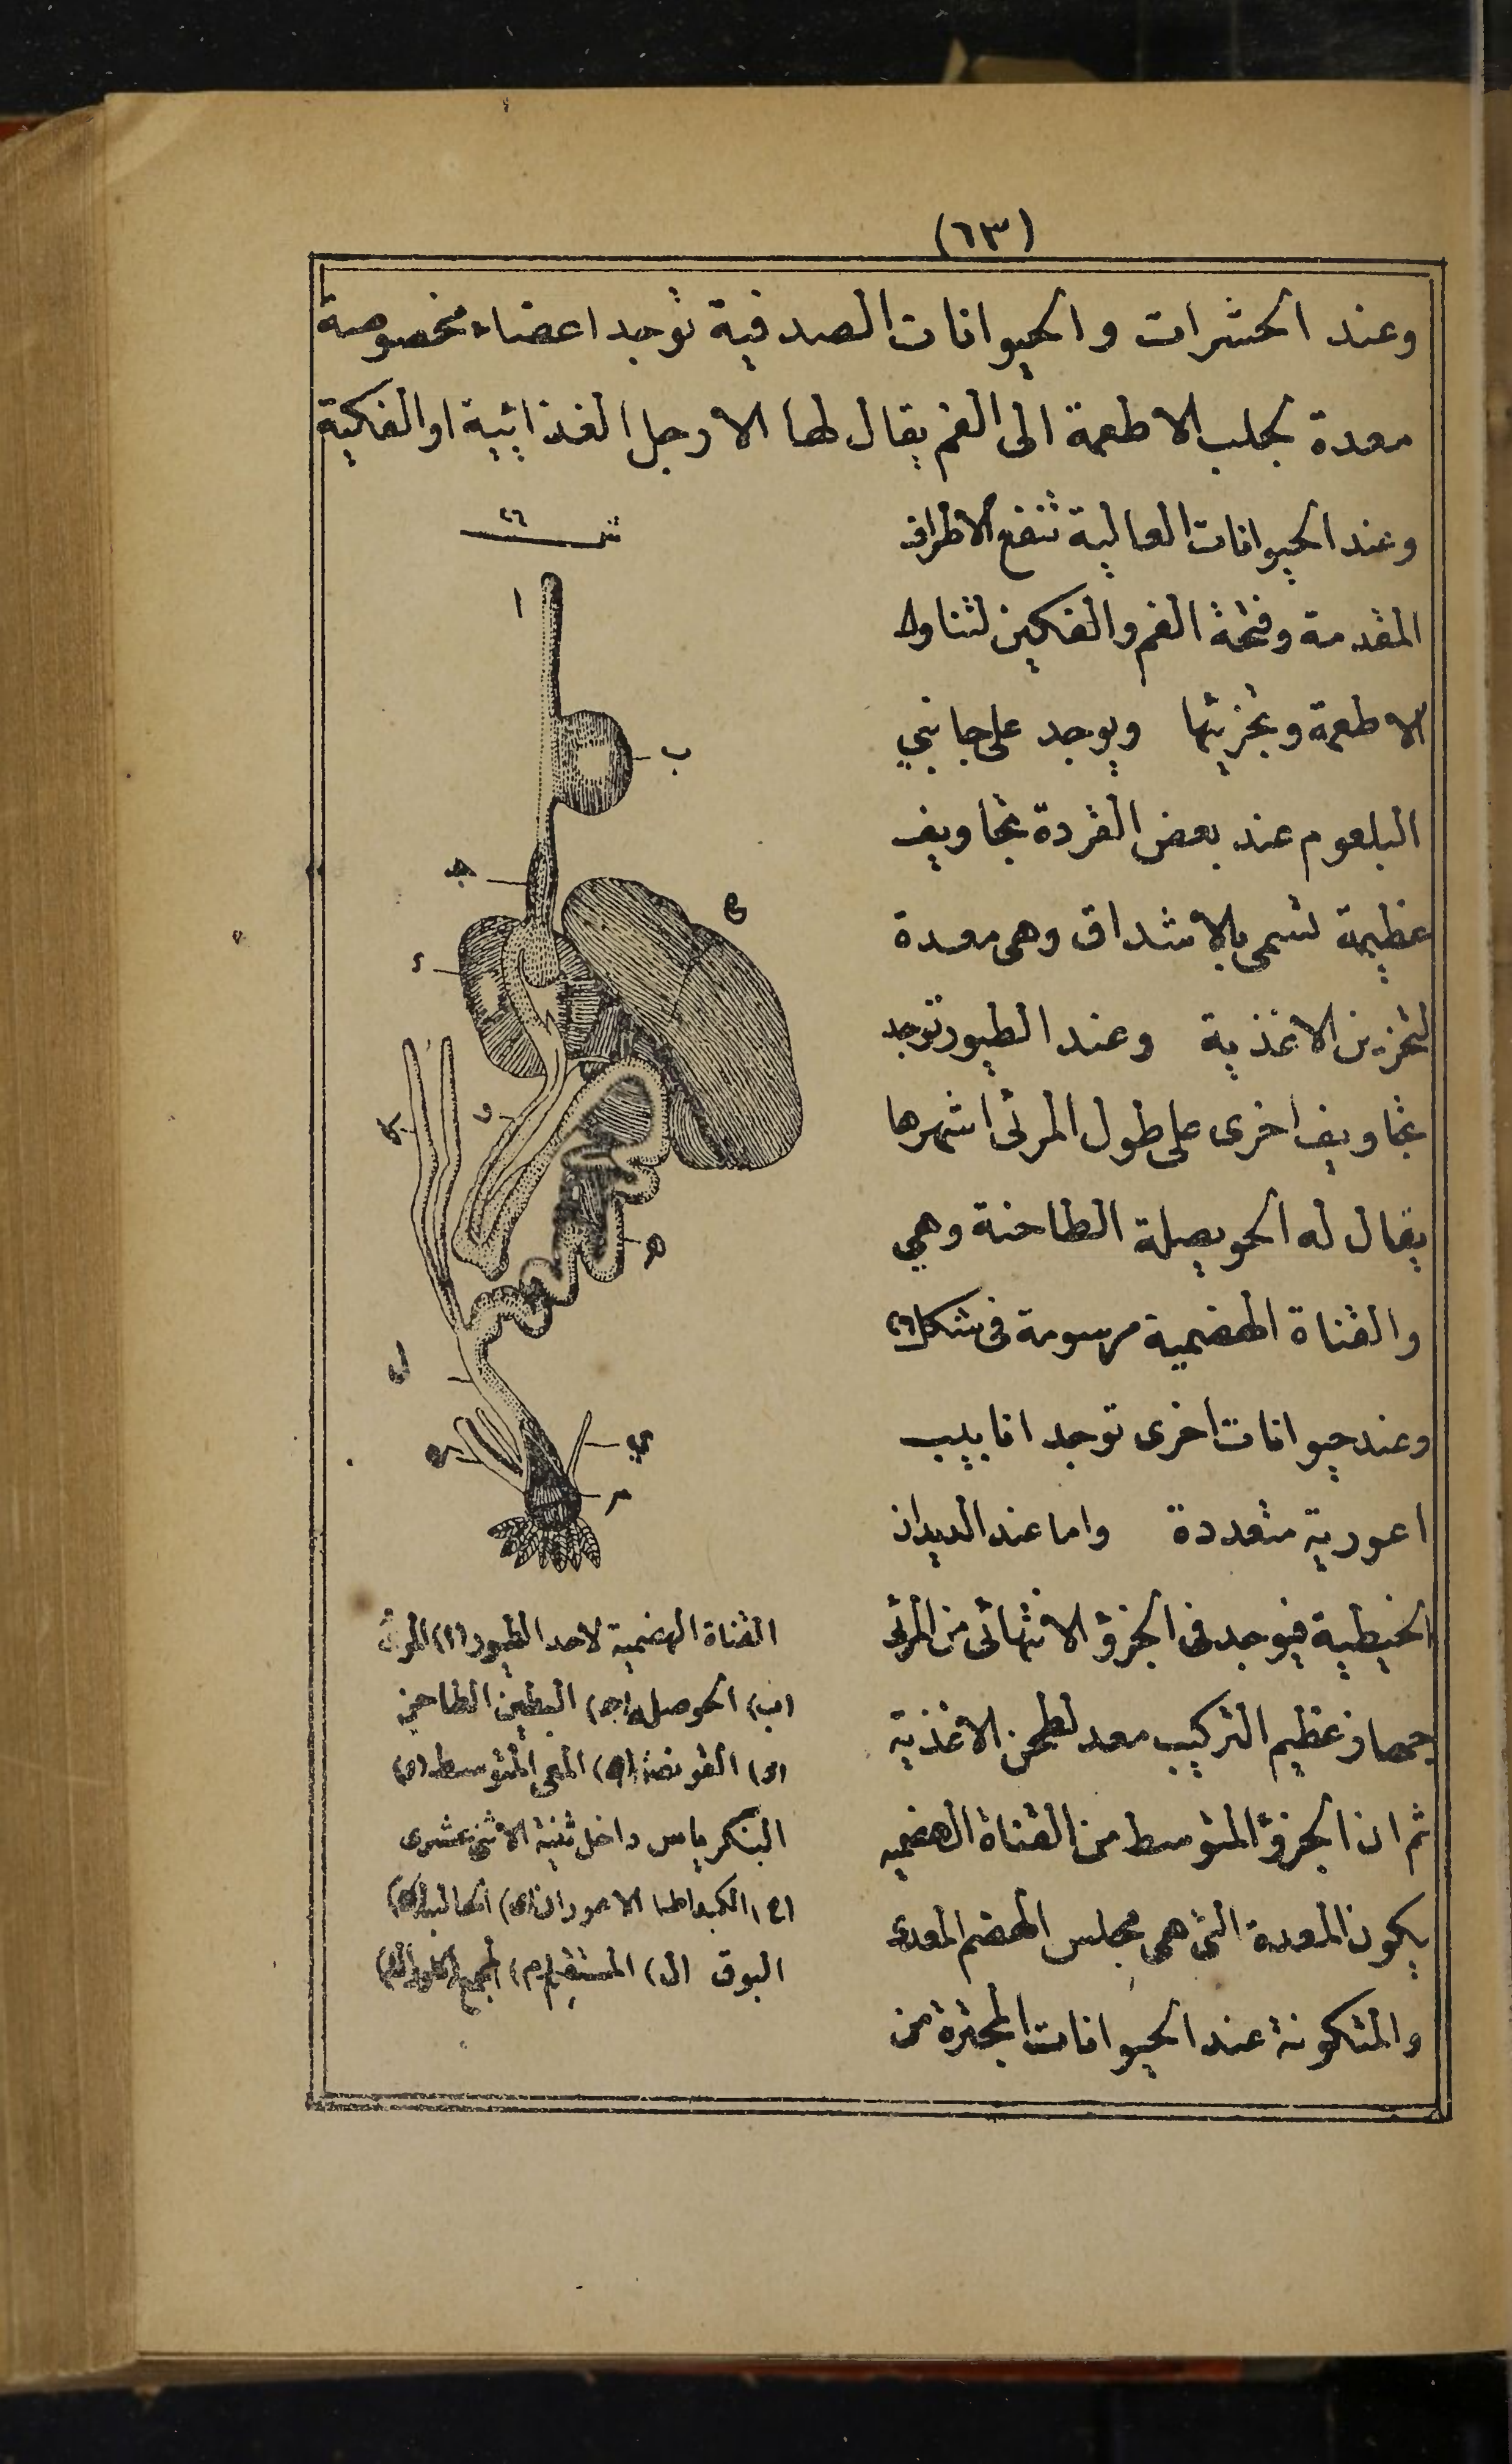 (٦٣)
وعند الحشرات والحيوانات الصدفية توجد اعضاء مخصوصة
معدة لجلب الاطعمة الى الفم يقال لها الارجل الغذائية او الفكية
وعند الحيوانات العالية تنفع الاطراف
المقدمة وفتحة الفم والفكين لتناول
الاطعمة وتجزيئها ويوجد على جانبي
البلعوم عند بعض القردة تجاويف
عظيمة تسمى بالاشداق وهى معدة
لتخزين الاغذية وعند الطيور توجد
تجاويف اخرى على طول المرئى اشهرها
يقال له الحويصلة الطاحنة وهي
والقناة الهضمية مرسومة فى شكل ٢٦
وعند حيوانات اخرى توجد انابيب
اعورية متعددة واما عند الديدان
الخيطية فيوجد فى الجزؤ الانتهائى من المرئى
جهاز عظيم التركيب معد لطحن الاغذية
ثم ان الجزؤ المتوسط من القناة الهضميه
يكون المعدة التى هى مجلس الهضم المعدى
والمتكونة عند الحيوانات المجترة من
شـ ٢٦
ا
ب
جـ
ح
د
و
ك
هـ
ل
ى
م
القناة الهضمية لاحد الطيور (ا) المرئ
(ب) الحوصله (جـ) البطين الطاحن
(د) القونصة (هـ) المعى المتوسط (و)
البنكرياس داخل ثنية الاثنى عشرى
(ح) الكبد الاعوران (ى) الحالب (ك)
البوق (ل) المستقيم (م) المجمع